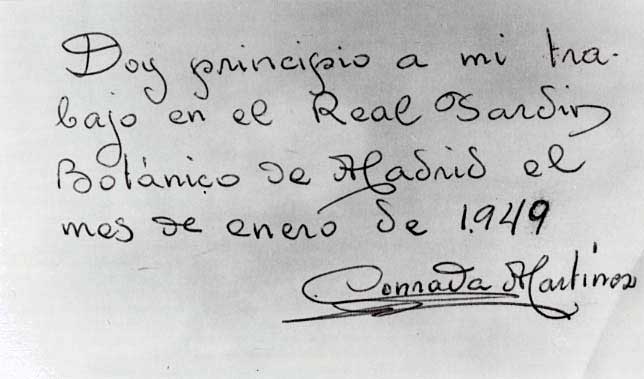 Doy principio a mi tra-
bajo en el Real Jardin
Botánico de Madrid el
mes de enero de 1.949
Conrada Martínez